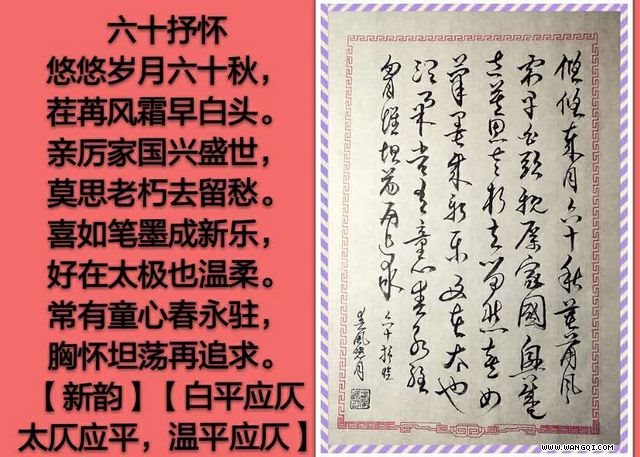 六十抒怀
悠悠岁月六十秋，
荏苒风霜早白头。
亲厉家国兴盛世，
莫思老朽去留愁。
喜如笔墨成新乐，
好在太极也温柔。
常有童心春永驻，
胸怀坦荡再追求。
【新韵】【白平应仄
太仄应平，温平应仄】
悠悠岁月六十秋荏苒风
霜早白头亲厉家国兴盛
世莫思老朽去留愁喜如
笔墨成新乐好在太也
常有童心春永驻
胸怀坦荡再追求
六十抒怀
WWW.WANGQI.COM